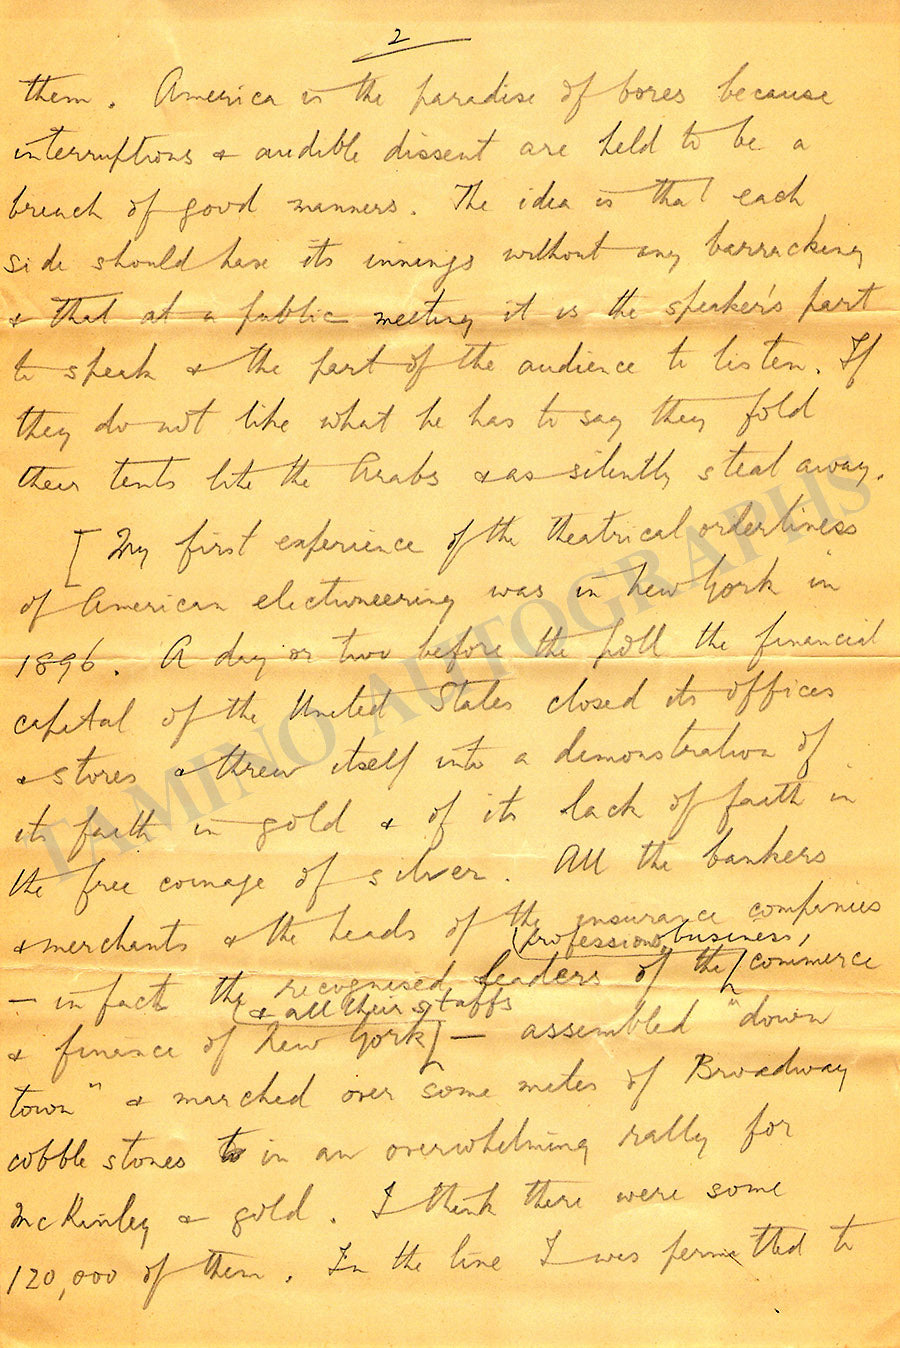 2
them. America is the paradise of bores because
interruptions & audible dissent are held to be a
breach of good manners. The idea is that each
side should have its innings without any barracking
& that at a public meeting it is the speaker's part
to speak & the part of the audience to listen. If
they do not like what he has to say they fold
their tents like the Arabs & as silently steal away.
[ My first experience of the theatrical orderliness
of American electioneering was in New York in
1896. A day or two before the poll the financial
capital of the United States closed its offices
& stores & threw itself into a demonstration of
its faith in gold & of its lack of faith in
the free coinage of silver. All the bankers
& merchants & the heads of the insurance companies
professions, business,
— in fact the recognised leaders of the commerce
& all their staffs
& finance of New York — assembled "down
town" & marched over some miles of Broadway
cobble stones to in an overwhelming rally for
McKinley & gold. I think there were some
120,000 of them. In the line I was permitted to
TAMINO AUTOGRAPHS